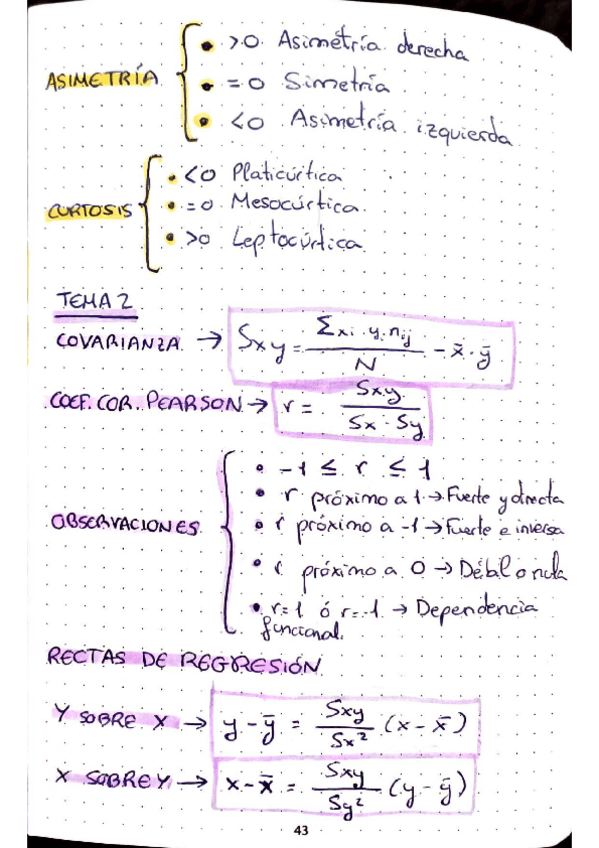 ASIMETRÍA
• >0 Asimetría derecha
• =0 Simetría
• <0 Asimetría izquierda
CURTOSIS
• <0 Platicúrtica
• =0 Mesocúrtica
• >0 Leptocúrtica
TEMA 2
COVARIANZA → Sxy = Σxi·yj·nij / N − x̄·ȳ
COEF. COR. PEARSON → r = Sxy / Sx·Sy
OBSERVACIONES
• -1 ≤ r ≤ 1
• r próximo a 1 → Fuerte y directa
• r próximo a -1 → Fuerte e inversa
• r próximo a 0 → Débil o nula
• r=1 ó r=-1 → Dependencia
funcional.
RECTAS DE REGRESIÓN
Y SOBRE X → y-ȳ = Sxy / Sx² (x-x̄)
X SOBRE Y → x-x̄ = Sxy / Sy² (y-ȳ)
43